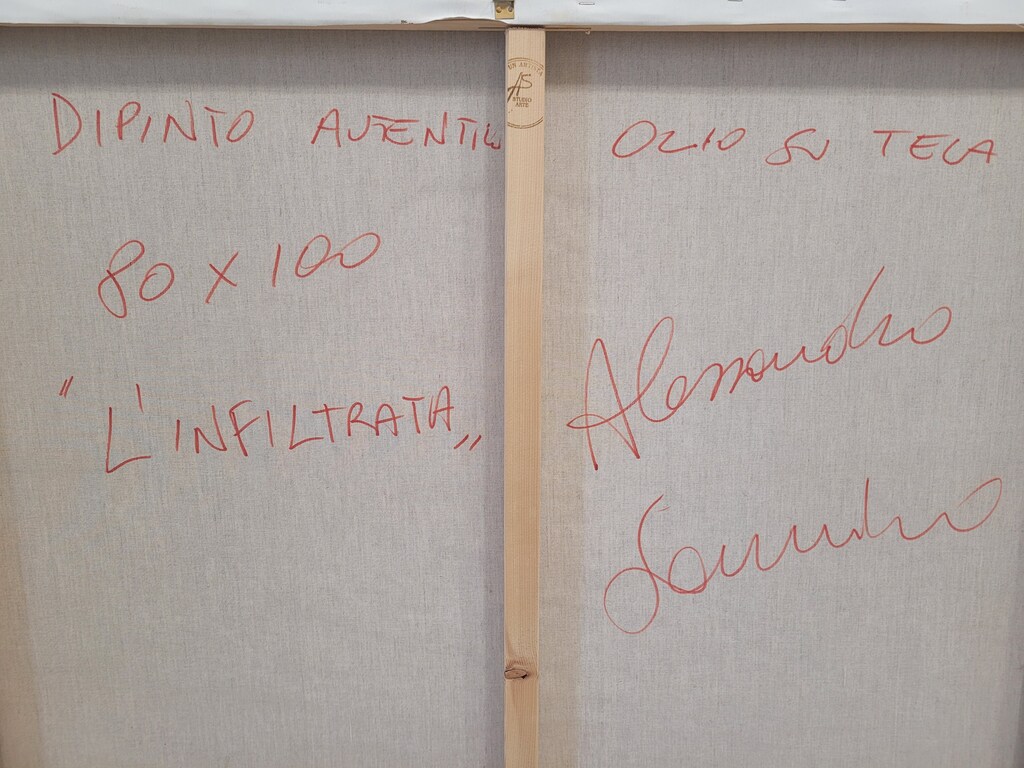 DIPINTO AUTENTICO OLIO SU TELA
80 x 100
"L'INFILTRATA„
Alessandro
UN ARTISTA
AS
STUDIO
ARTE